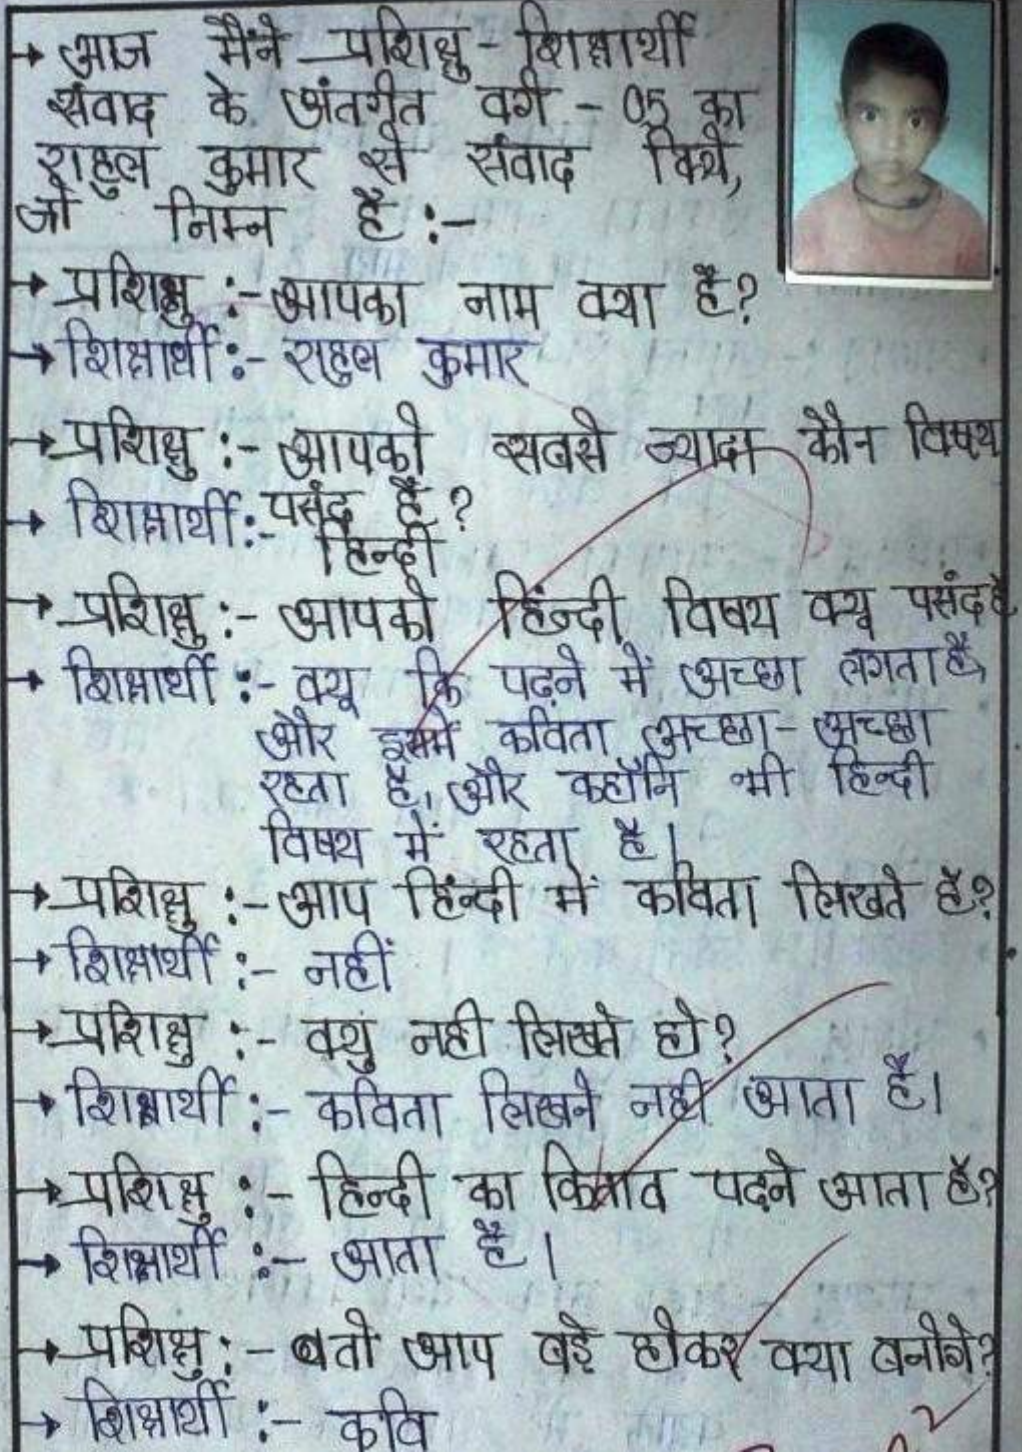 → आज मैंने प्रशिक्षु - शिक्षार्थी
संवाद के अंतर्गत वर्ग - 05 का
राहुल कुमार से संवाद किये,
जो निम्न है :-
→ प्रशिक्षु :- आपका नाम क्या है?
→ शिक्षार्थी :- राहुल कुमार
→ प्रशिक्षु :- आपको सबसे ज्यादा कौन विषय
पसंद है ?
→ शिक्षार्थी :- हिन्दी
→ प्रशिक्षु :- आपको हिन्दी विषय क्यू पसंद है
→ शिक्षार्थी :- क्यू कि पढ़ने में अच्छा लगता है,
और इसमें कविता अच्छा - अच्छा
रहता है, और कहाँनि भी हिन्दी
विषय में रहता है।
→ प्रशिक्षु :- आप हिन्दी में कविता लिखते हैं?
→ शिक्षार्थी :- नहीं
→ प्रशिक्षु :- क्युं नही लिखते हो?
→ शिक्षार्थी :- कविता लिखने नही आता है।
→ प्रशिक्षु :- हिन्दी का किताव पढने आता है?
→ शिक्षार्थी :- आता है।
→ प्रशिक्षु :- बतो आप बड़े होकर क्या बनोगे?
→ शिक्षार्थी :- कवि